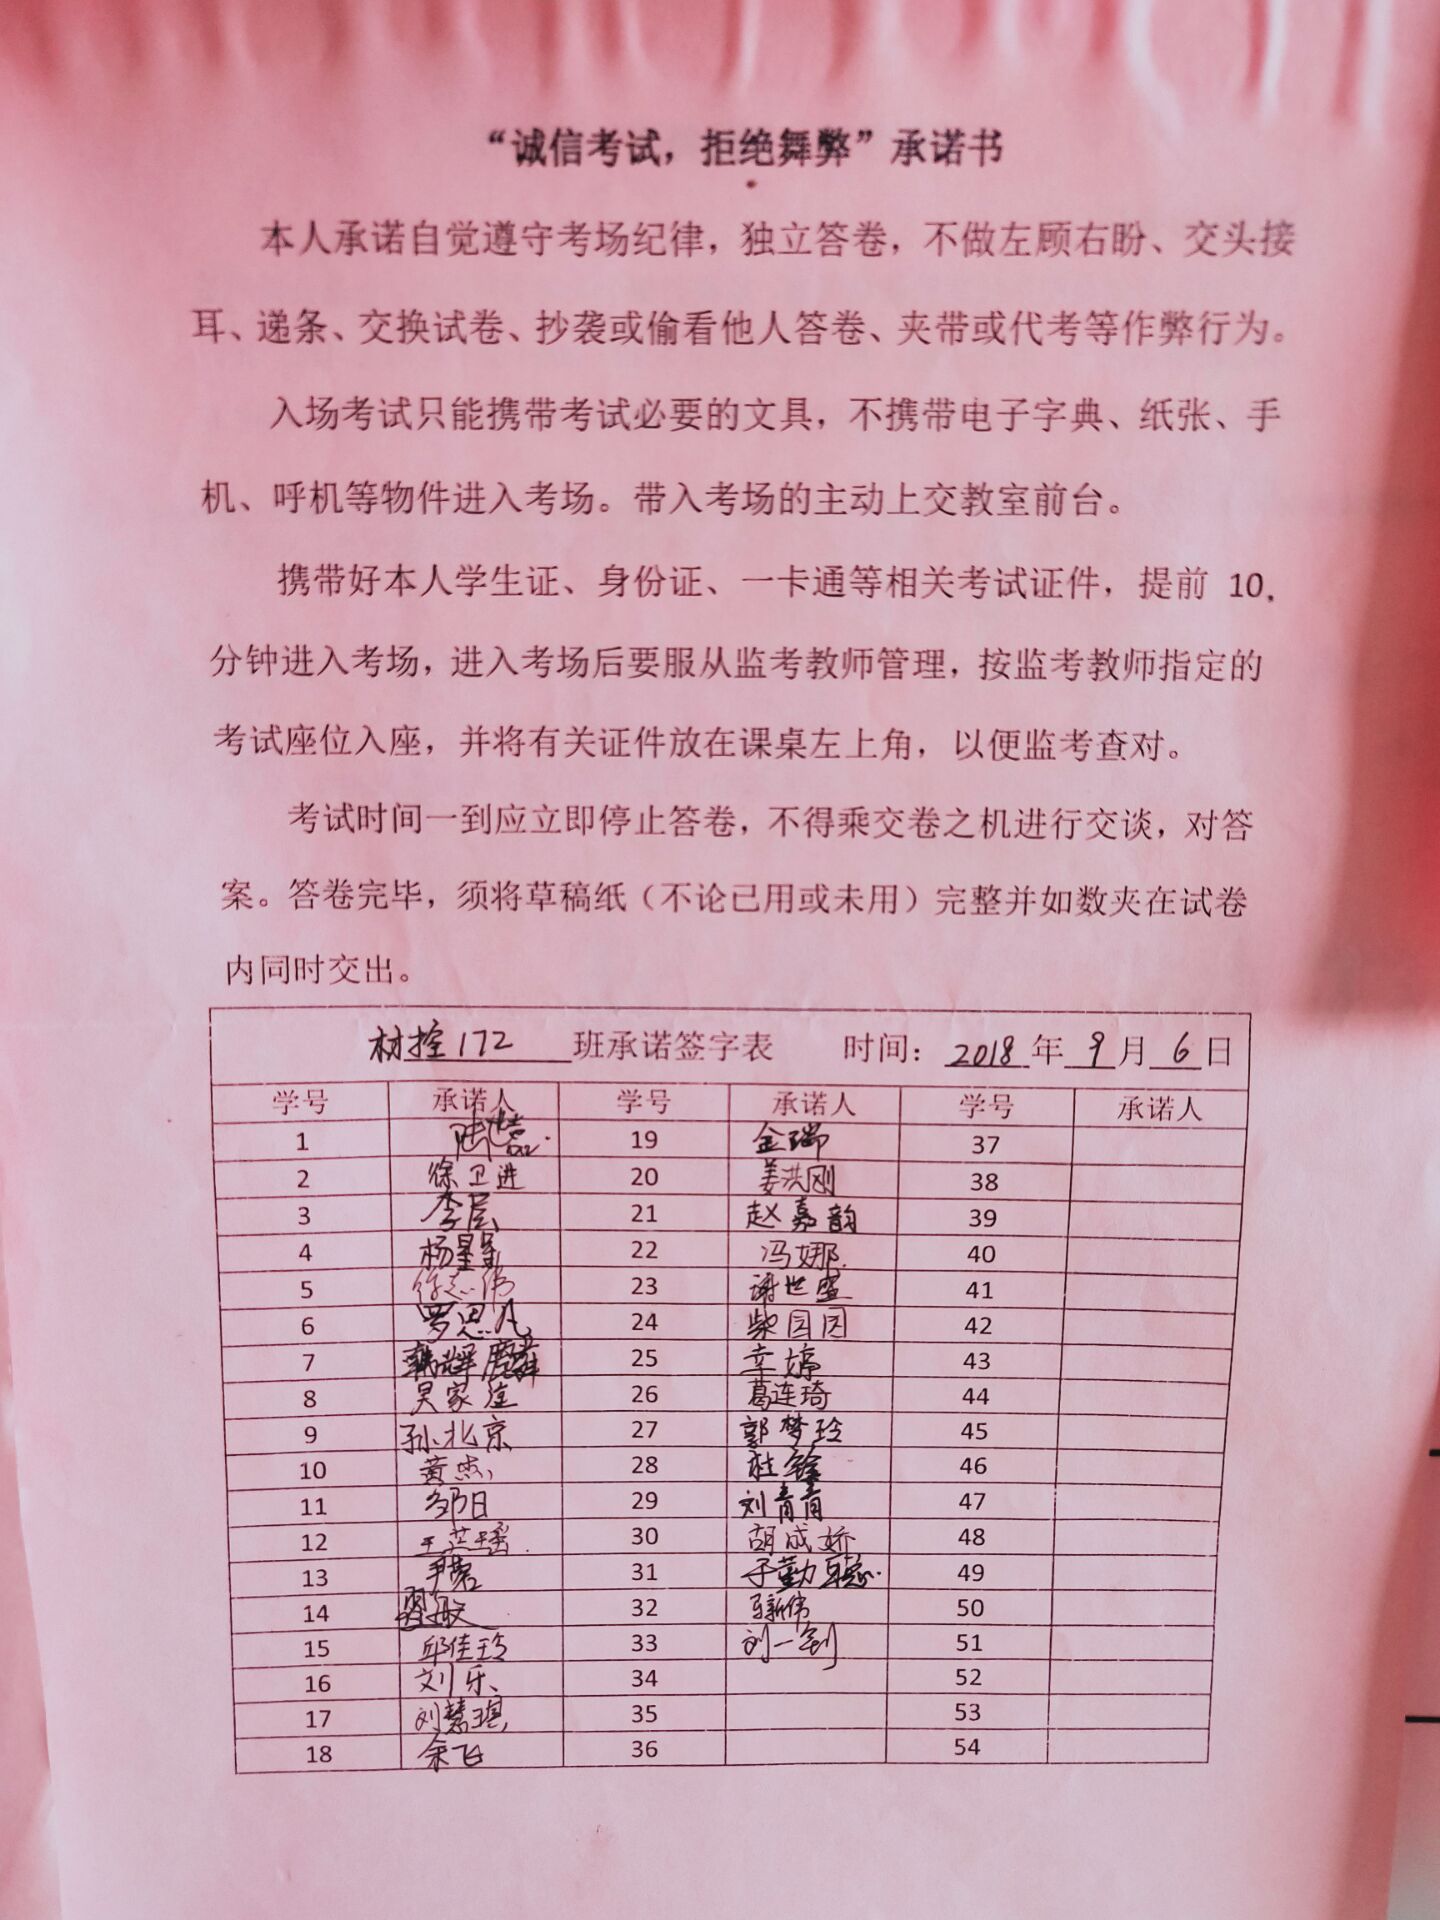 “诚信考试，拒绝舞弊”承诺书
本人承诺自觉遵守考场纪律，独立答卷，不做左顾右盼、交头接
耳、递条、交换试卷、抄袭或偷看他人答卷、夹带或代考等作弊行为。
入场考试只能携带考试必要的文具，不携带电子字典、纸张、手
机、呼机等物件进入考场。带入考场的主动上交教室前台。
携带好本人学生证、身份证、一卡通等相关考试证件，提前 10
分钟进入考场，进入考场后要服从监考教师管理，按监考教师指定的
考试座位入座，并将有关证件放在课桌左上角，以便监考查对。
考试时间一到应立即停止答卷，不得乘交卷之机进行交谈，对答
案。答卷完毕，须将草稿纸（不论已用或未用）完整并如数夹在试卷
内同时交出。
材控172 班承诺签字表 时间：2018 年 9 月 6 日
学号 承诺人 学号 承诺人 学号 承诺人
1 19 金瑞 37
2 徐卫进 20 姜洪刚 38
3 21 赵嘉韵 39
4 杨星星 22 冯娜 40
5 徐志伟 23 谢世盛 41
6 罗思凡 24 柴园园 42
7 韩辉麟 25 幸婷 43
8 26 葛连琦 44
9 孙北京 27 郭梦玲 45
10 黄杰 28 杜锋 46
11 邹日 29 刘青青 47
12 王芷瑶 30 胡成娇 48
13 31 于勤聪 49
14 32 马新伟 50
15 邱佳玲 33 刘一钊 51
16 刘乐 34 52
17 刘慧琪 35 53
18 余飞 36 54